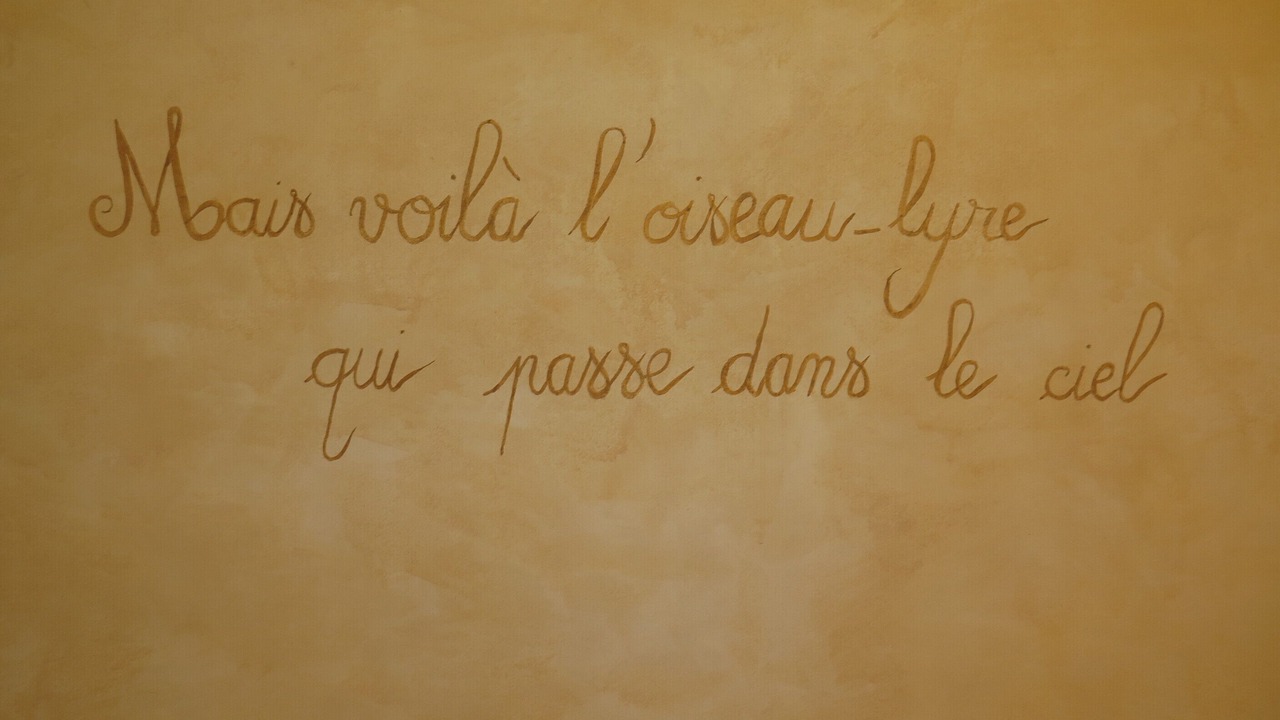 Mais voilà l'oiseau-lyre
qui passe dans le ciel